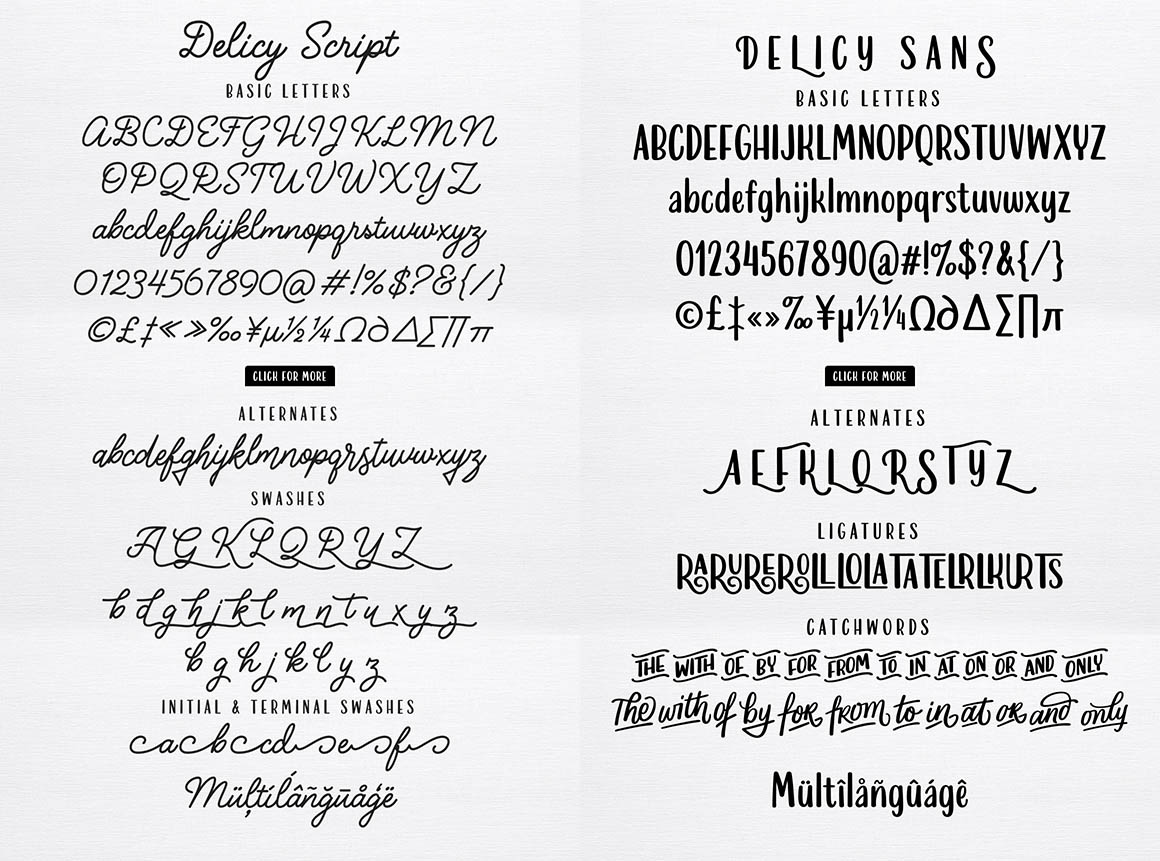 Delicy Script
BASIC LETTERS
ABCDEFGHIJKLMN
OPQRSTUVWXYZ
abcdefghijklmnopqrstuvwxyz
01234567890@#!%$?&{/}
©£‡«»‰¥µ½¼Ω∂∆∑∏π
CLICK FOR MORE
ALTERNATES
abcdefghijklmnopqrstuvwxyz
SWASHES
AGKLQRYZ
bdghjklmntuxyz
bghjklyz
INITIAL & TERMINAL SWASHES
cacbccdsesfs
Müļtíĺâñğūåģë
DELICY SANS
BASIC LETTERS
ABCDEFGHIJKLMNOPQRSTUVWXYZ
abcdefghijklmnopqrstuvwxyz
01234567890@#!%$?&{/}
©£‡«»‰¥µ½¼Ω∂∆∑∏π
CLICK FOR MORE
ALTERNATES
AEFKLQRSTYZ
LIGATURES
RARUREROLLLOLATATELRLKURTS
CATCHWORDS
THE WITH OF BY FOR FROM TO IN AT ON OR AND ONLY
The with of by for from to in at or and only
Mültîlåñgûágê